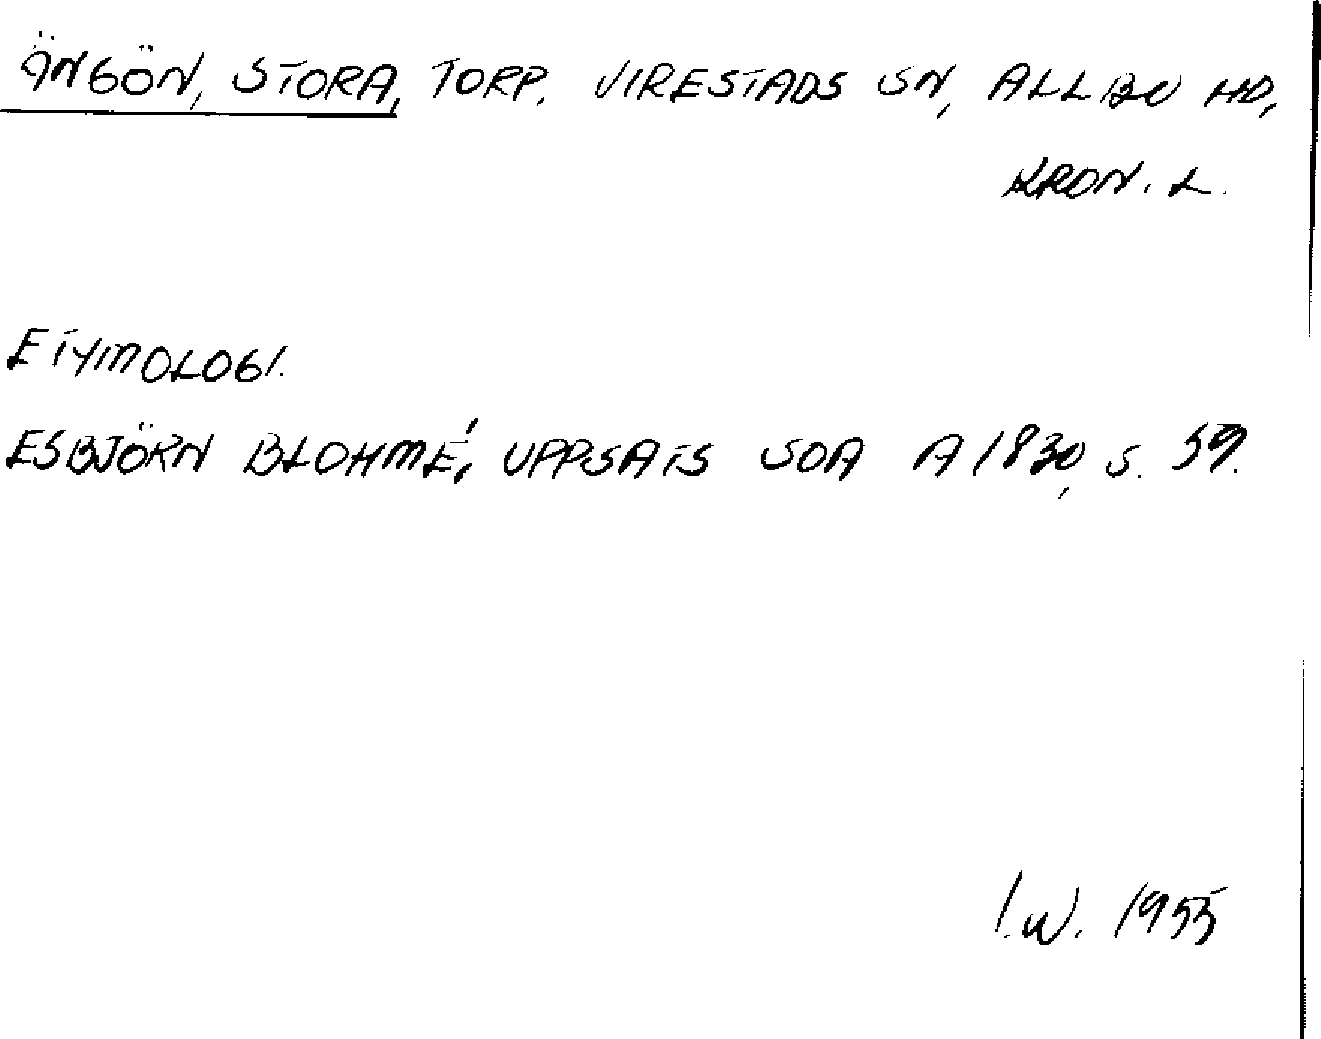 ÄNGÖN, STORA, TORP. VIRESTADS SN, ALLBO HD,
KRON. L.
ETYMOLOGI.
ESBJÖRN BLOHMÉ, UPPSATS SOA A 1830, S. 59.
I.W. 1955